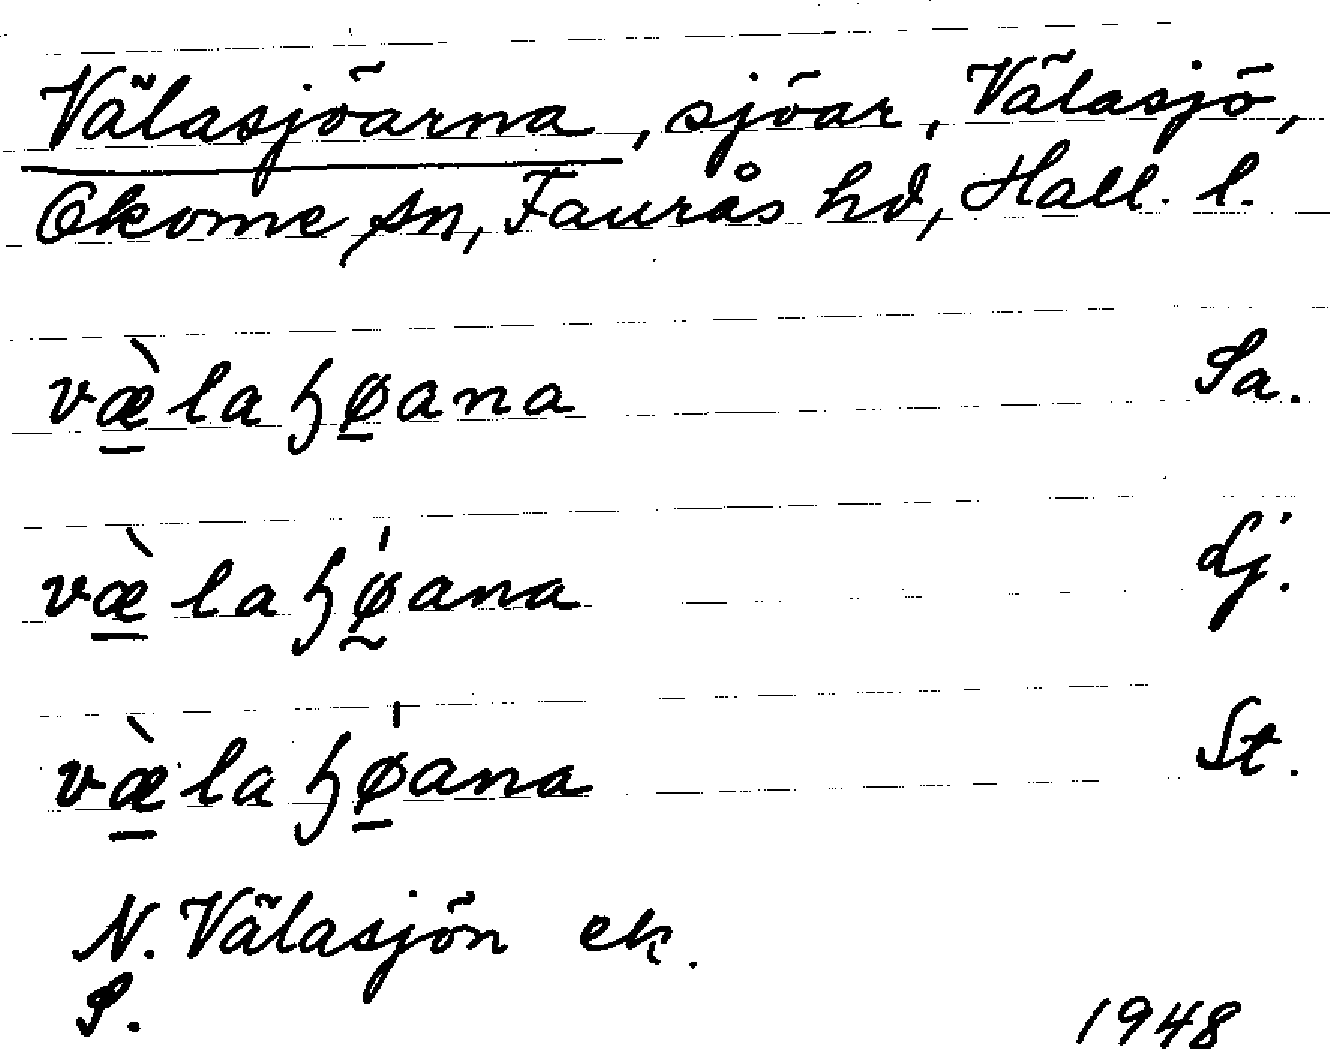 Välasjöarna, sjöar, Välasjö,
Okome sn, Faurås hd, Hall. l.
væ̱̀laɧø̱ana Sa.
væ̱̀laɧø̰̍ana Lj.
væ̱̀laɧø̱̍ana St.
N. Välasjön ek.
S.
1948